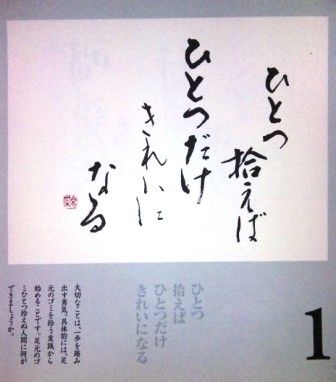 ひとつ
拾えば
ひとつだけ
きれいに
なる
ひとつ
拾えば
ひとつだけ
きれいになる
大切なことは、一歩を踏み
出す勇気。具体的には、足
元のゴミを拾う実践から
始めることです。足元のゴ
ミひとつ拾えぬ人間に何が
できましょうか。
1